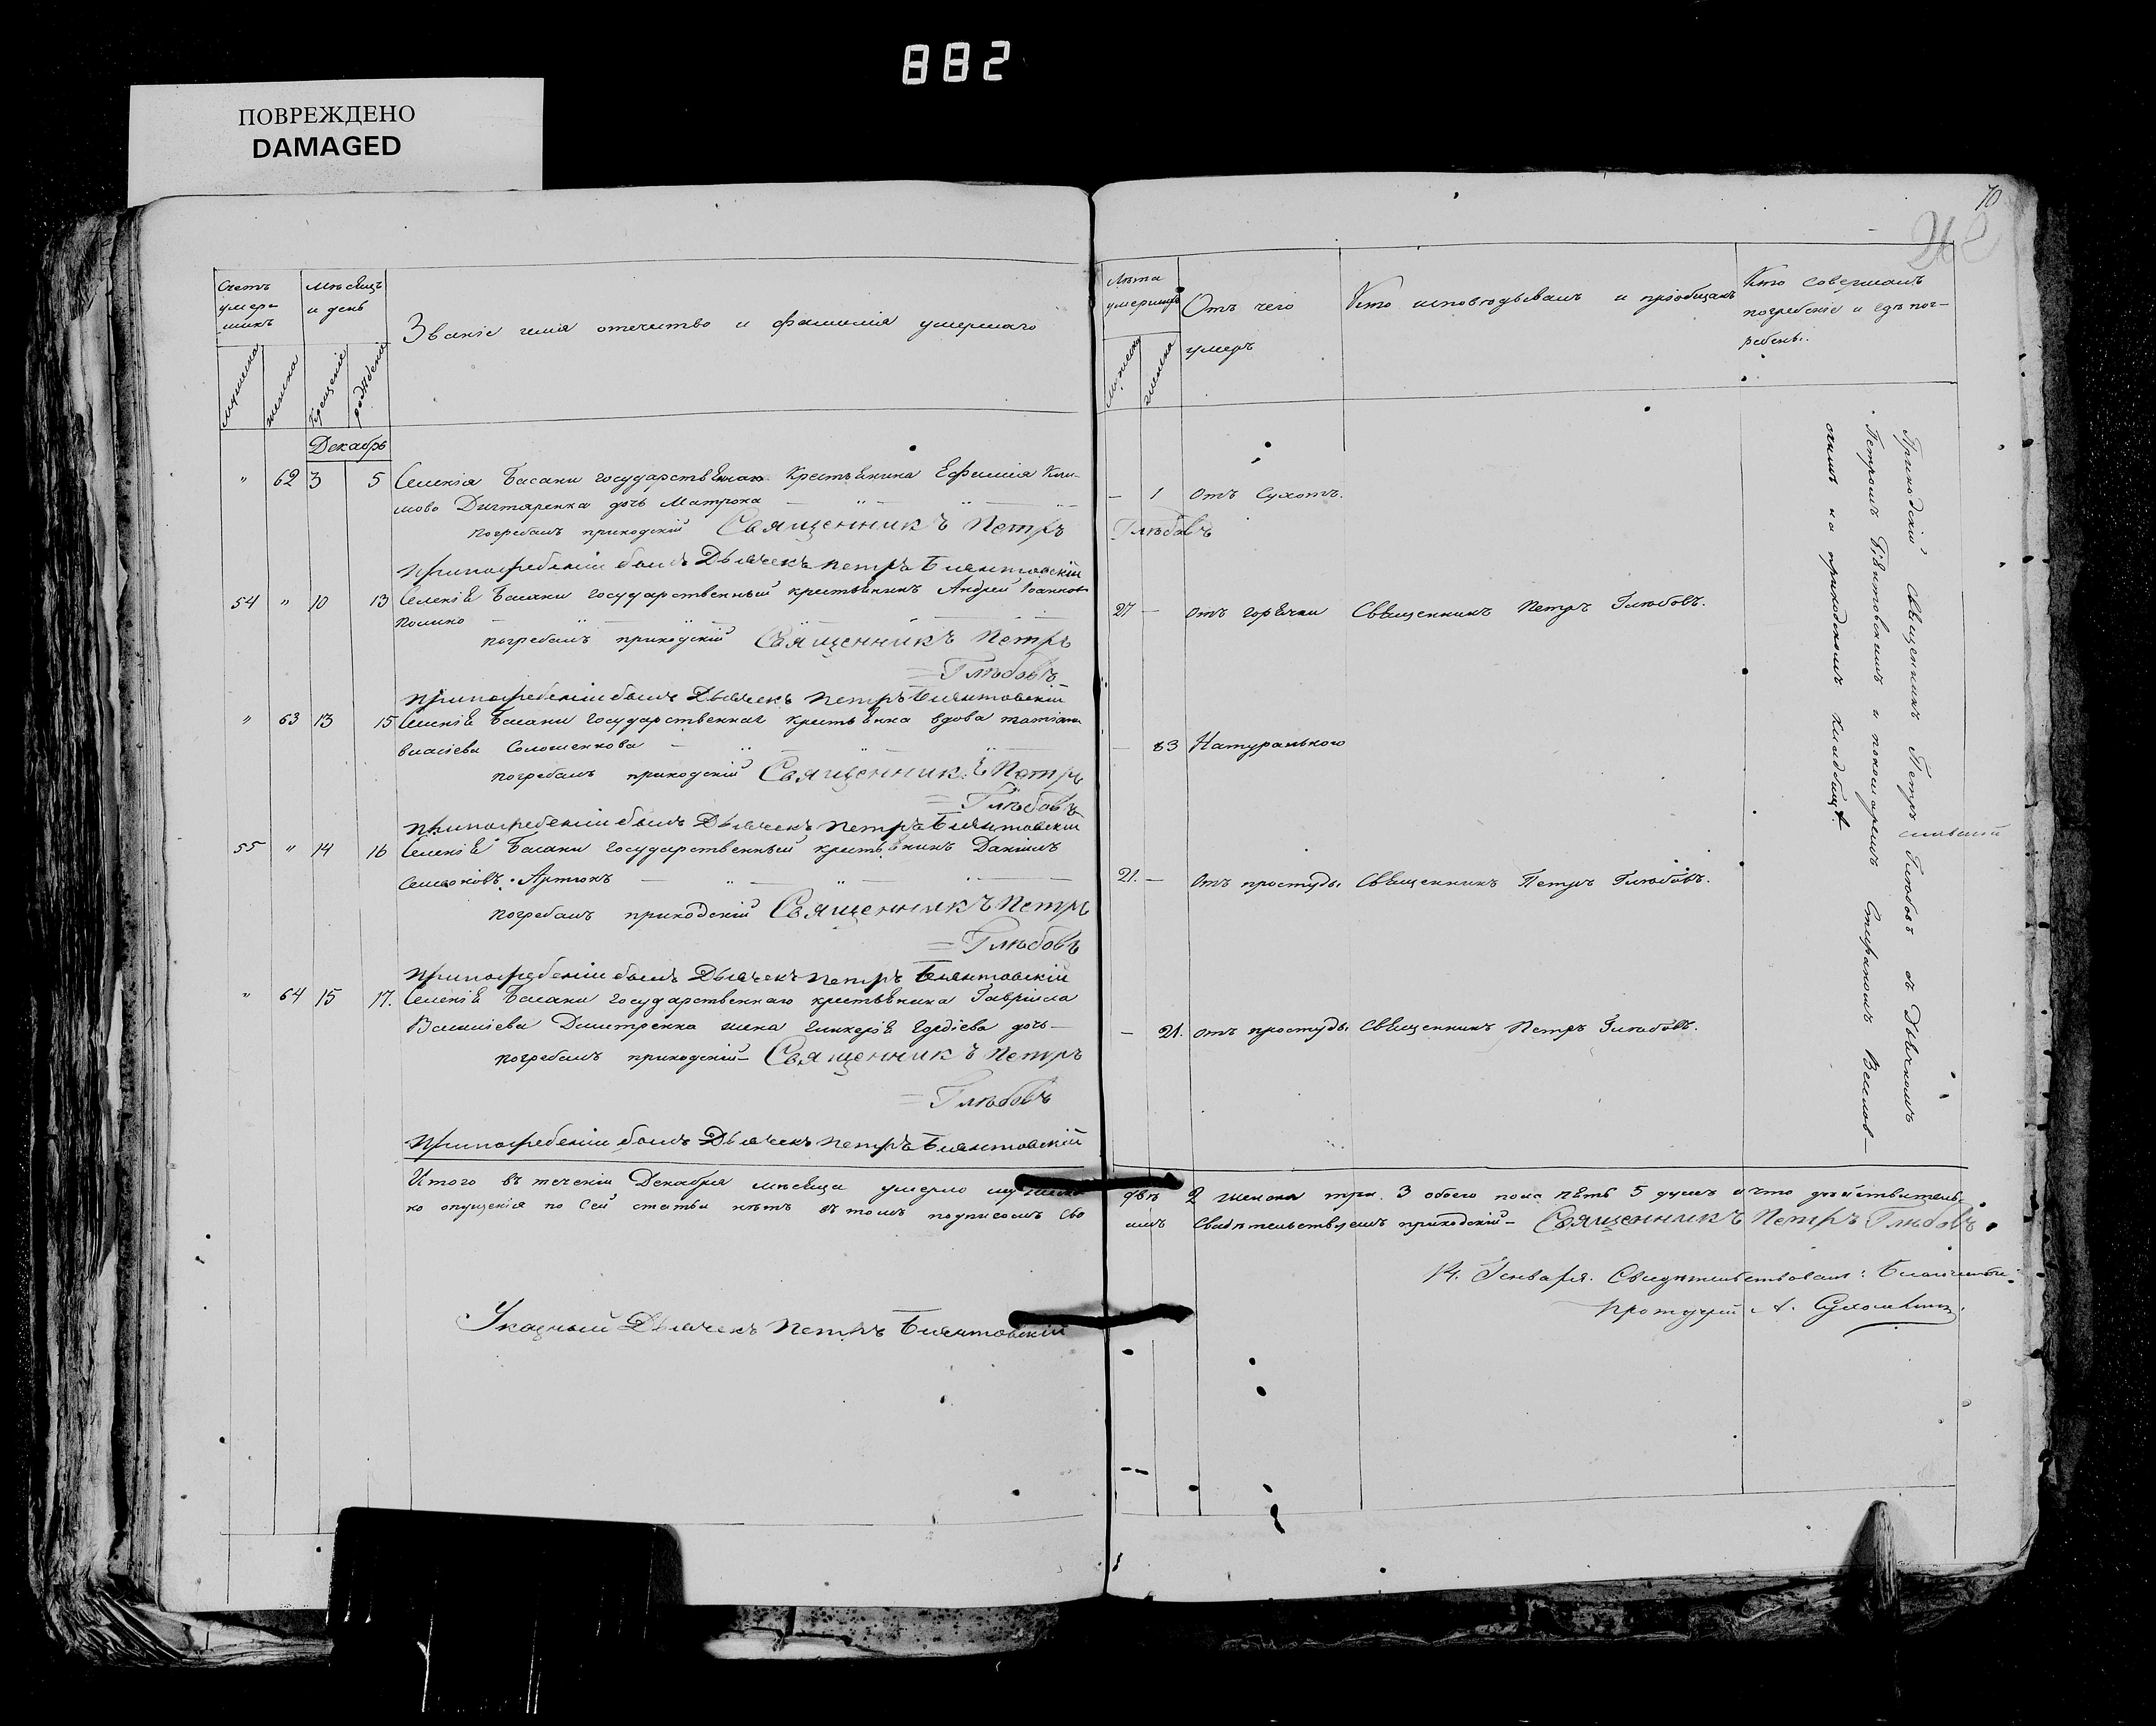 882
ПОВРЕЖДЕНО
DAMAGED
70
Счетъ
умер-
шихъ
мѣсяцъ
и день
Званіе имя отечество и фамилія умершаго
мужеска
женска
Крещенія
рожденія
Лѣта
умершихъ
Отъ чего
умеръ
Кто исповѣдывалъ и пріобщалъ
Кто совершалъ
погребеніе и гдѣ пог-
ребенъ.
мужеска
женска
Декабрь
" 62 3 5 Селенія Басани государственнаго Крестьянина Ефимія Кли-
мова дочь Матрона
— 1 отъ Сухотъ.
погребалъ приходскій Священникъ Петръ
Глѣбовъ
при погребеніи былъ Дьячекъ Петръ
54 " 10 13 Селенія Басани государственный крестьянинъ Андрей Іоанновъ
Полико
27 — отъ горячки Священникъ Петръ Глѣбовъ.
погребалъ приходскій Священникъ Петръ
= Глѣбовъ
при погребеніи былъ Дьячекъ Петръ
" 63 13 15 Селенія Басани государственная крестьянка вдова татіана
власіева Соломенкова
— 83 Натуральною
погребалъ приходскій Священникъ Петръ
= Глѣбовъ
при погребеніи былъ Дьячекъ Петръ
55 " 14 16 Селенія Басани государственный крестьянинъ Даніилъ
Симоновъ Артюхъ
21. — отъ простуды Священникъ Петръ Глѣбовъ.
погребалъ приходскій Священникъ Петръ
= Глѣбовъ
при погребеніи былъ Дьячекъ Петръ
" 64 15 17. Селенія Басани государственнаго крестьянина Гавріила
Василіева Дмитренка жена гликерія Гордіева дочь —
— 21. отъ простуды Священникъ Петръ Глѣбовъ.
погребалъ приходскій — Священникъ Петръ
= Глѣбовъ
при погребеніи былъ Дьячекъ Петръ
Приходскій священникъ Петръ Глѣбовъ съ Дьячкомъ
Петромъ и пономаремъ Стефаномъ
на приходскомъ кладбищѣ
Итого въ теченіи Декабря мѣсяца умерло мужеска два 2 женска три 3 обоего пола пять 5 душъ и что дѣйствитель-
но опущенія по сей статьи нѣтъ въ томъ подписомъ сво имъ свидѣтельствуемъ приходскій — Священникъ Петръ Глѣбовъ
14. Генваря. Свидѣтельствовалъ: Благочинный
Протоіерей А.
Указный Дьячекъ Петръ